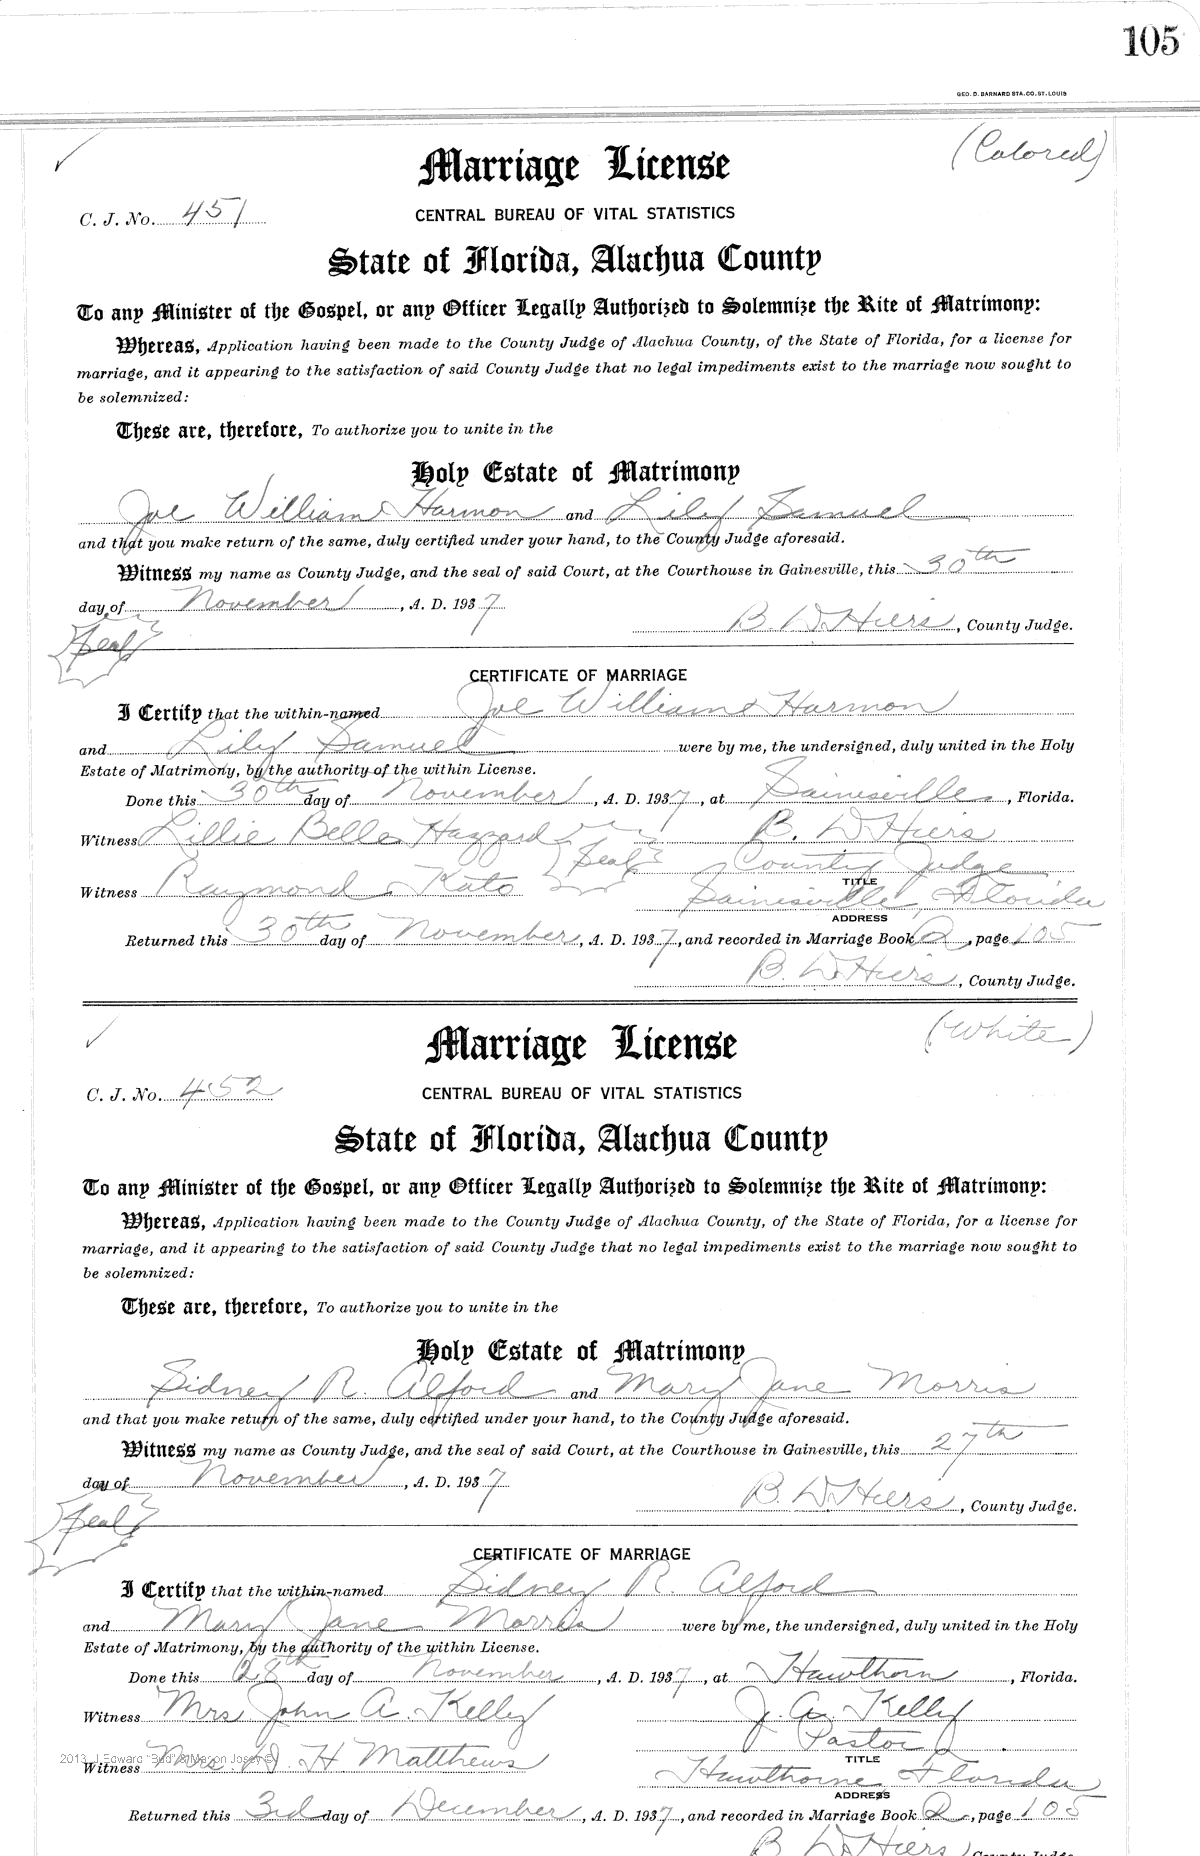 105
GEO. D. BARNARD STA. CO. ST. LOUIS
(Colored)
Marriage License
C. J. No. 451
CENTRAL BUREAU OF VITAL STATISTICS
State of Florida, Alachua County
To any Minister of the Gospel, or any Officer Legally Authorized to Solemnize the Rite of Matrimony:
Whereas, Application having been made to the County Judge of Alachua County, of the State of Florida, for a license for
marriage, and it appearing to the satisfaction of said County Judge that no legal impediments exist to the marriage now sought to
be solemnized:
These are, therefore, To authorize you to unite in the
Holy Estate of Matrimony
Joe William Harmon and Lily Samuel
and that you make return of the same, duly certified under your hand, to the County Judge aforesaid.
Witness my name as County Judge, and the seal of said Court, at the Courthouse in Gainesville, this 30th
day of November, A. D. 1937
B. D. Hiers, County Judge.
Seal
CERTIFICATE OF MARRIAGE
I Certify that the within-named Joe William Harmon
and Lily Samuel were by me, the undersigned, duly united in the Holy
Estate of Matrimony, by the authority of the within License.
Done this 30th day of November, A. D. 1937, at Gainesville, Florida.
Witness Lillie Belle Hazzard Seal B. D. Hiers
County Judge
Witness Raymond Kato TITLE
Gainesville, Florida
ADDRESS
Returned this 30th day of November, A. D. 1937, and recorded in Marriage Book Q, page 105
B. D. Hiers, County Judge.
(White)
Marriage License
C. J. No. 452
CENTRAL BUREAU OF VITAL STATISTICS
State of Florida, Alachua County
To any Minister of the Gospel, or any Officer Legally Authorized to Solemnize the Rite of Matrimony:
Whereas, Application having been made to the County Judge of Alachua County, of the State of Florida, for a license for
marriage, and it appearing to the satisfaction of said County Judge that no legal impediments exist to the marriage now sought to
be solemnized:
These are, therefore, To authorize you to unite in the
Holy Estate of Matrimony
Sidney R. Alford and Mary Jane Morris
and that you make return of the same, duly certified under your hand, to the County Judge aforesaid.
Witness my name as County Judge, and the seal of said Court, at the Courthouse in Gainesville, this 27th
day of November, A. D. 1937
B. D. Hiers, County Judge.
Seal
CERTIFICATE OF MARRIAGE
I Certify that the within-named Sidney R. Alford
and Mary Jane Morris were by me, the undersigned, duly united in the Holy
Estate of Matrimony, by the authority of the within License.
Done this 28th day of November, A. D. 1937, at Hawthorn, Florida.
Witness Mrs John A. Kelley J. A. Kelley
Pastor
2013 J Edward "Bud" & Marion Josey ©
Witness Mrs. H Matthews TITLE
Hawthorne, Florida
ADDRESS
Returned this 3rd day of December, A. D. 1937, and recorded in Marriage Book Q, page 105
B. D. Hiers, County Judge.